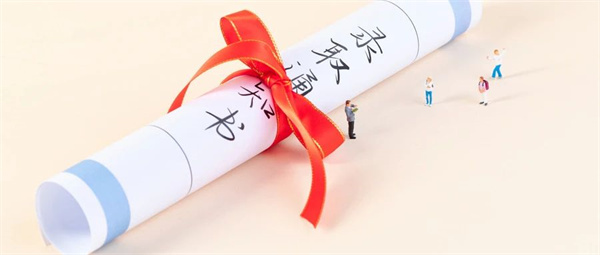 录取通知书